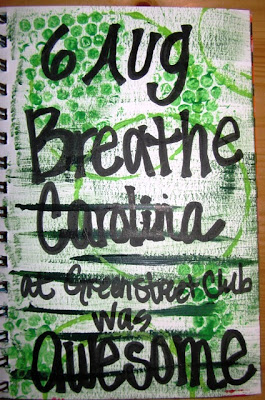 6 Aug
Breathe
Carolina
at Greenstreet Club
was
awesome